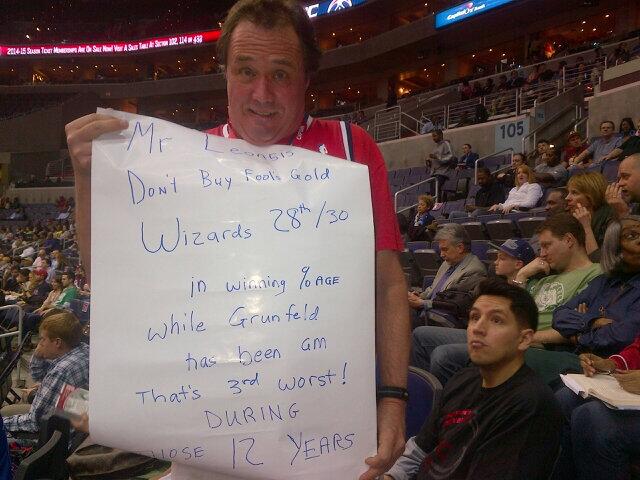 2014-15 Season Ticket Memberships Are On Sale Now! Visit A Sales Table At Section 102, 114 or
Capital One Bank
105
Mr Leonsis
Don't Buy Fool's Gold
Wizards 28th/30
in winning %AGE
while Grunfeld
has been GM
That's 3rd worst!
DURING
HOSE 12 YEARS